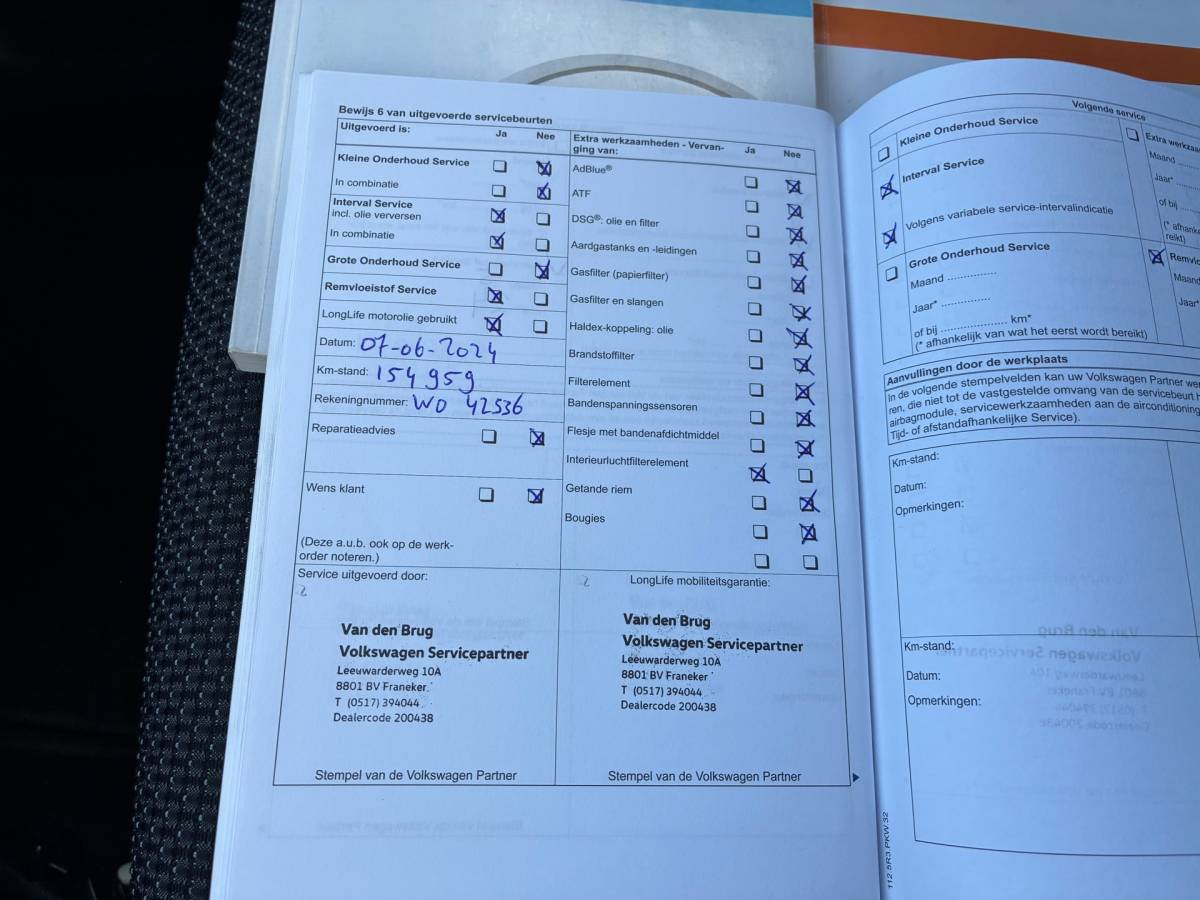 Bewijs 6 van uitgevoerde servicebeurten
Uitgevoerd is: Ja Nee
Kleine Onderhoud Service
In combinatie
Interval Service
incl. olie verversen
In combinatie
Grote Onderhoud Service
Remvloeistof Service
LongLife motorolie gebruikt
Datum: 07-06-2024
Km-stand: 154959
Rekeningnummer: WO 42536
Reparatieadvies
Wens klant
(Deze a.u.b. ook op de werk-
order noteren.)
Extra werkzaamheden - Vervan-
ging van: Ja Nee
AdBlue®
ATF
DSG®: olie en filter
Aardgastanks en -leidingen
Gasfilter (papierfilter)
Gasfilter en slangen
Haldex-koppeling: olie
Brandstoffilter
Filterelement
Bandenspanningssensoren
Flesje met bandenafdichtmiddel
Interieurluchtfilterelement
Getande riem
Bougies
Service uitgevoerd door:
2
Van den Brug
Volkswagen Servicepartner
Leeuwarderweg 10A
8801 BV Franeker
T (0517) 394044
Dealercode 200438
Stempel van de Volkswagen Partner
2
LongLife mobiliteitsgarantie:
Van den Brug
Volkswagen Servicepartner
Leeuwarderweg 10A
8801 BV Franeker
T (0517) 394044
Dealercode 200438
Stempel van de Volkswagen Partner
Volgende service
Kleine Onderhoud Service
Interval Service
Volgens variabele service-intervalindicatie
Grote Onderhoud Service
Maand ...............
Jaar* ...............
of bij .................... km*
(* afhankelijk van wat het eerst wordt bereikt)
Extra
Maand
Jaar*
of bij
reikt)
Maand
Jaar*
Aanvullingen door de werkplaats
In de volgende stempelvelden kan uw Volkswagen Partner
ren, die niet tot de vastgestelde omvang van de servicebeurt
airbagmodule, servicewerkzaamheden aan de airconditioning
Tijd- of afstandafhankelijke Service).
Km-stand:
Datum:
Opmerkingen:
Km-stand:
Datum:
Opmerkingen:
112.5R3.PKW.32